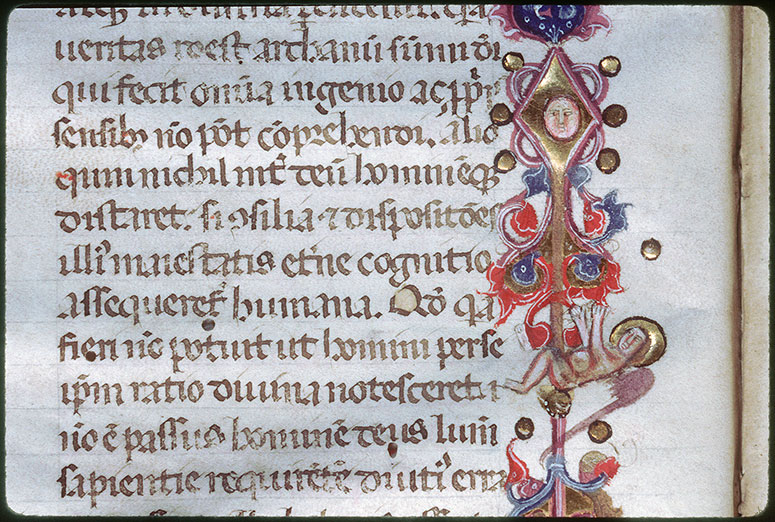 ueritas ro est archanū sūmi dī
qui fecit om̄ia ingenio ac ꝓp̄ris
sensibꝫ nō pōt cōprehendi. Alio
quin nichil int̄ deū hominēqꝫ
distaret. si ꝯsilia ⁊ dispositōes
illiꝰ maiestatis et̄ne cogitatio
assequeret᷑ humana. Qđ qa
fieri nō potuit ut homini per se
ip̄m ratio diuina notesceret n
nō ē passus hominē deus lum̄
sapientie requirētē diutiꝰ erra